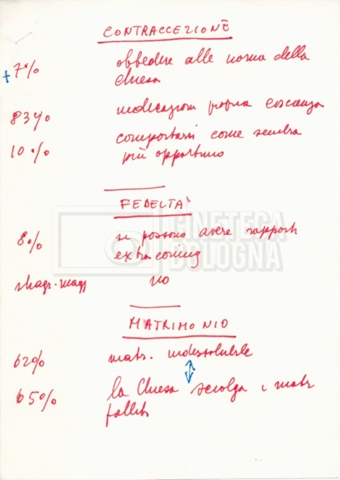 CONTRACCEZIONE
+ 7% obbedire alle norme della
chiesa
83% indicazioni propria coscienza
10% comportarsi come sembra
più opportuno
FEDELTÀ
8% si possono avere rapporti
extraconiug
stragr. magg no
MATRIMONIO
62% matr. indissolubile
65% la Chiesa sciolga i matr
falliti
CINETECA
BOLOGNA